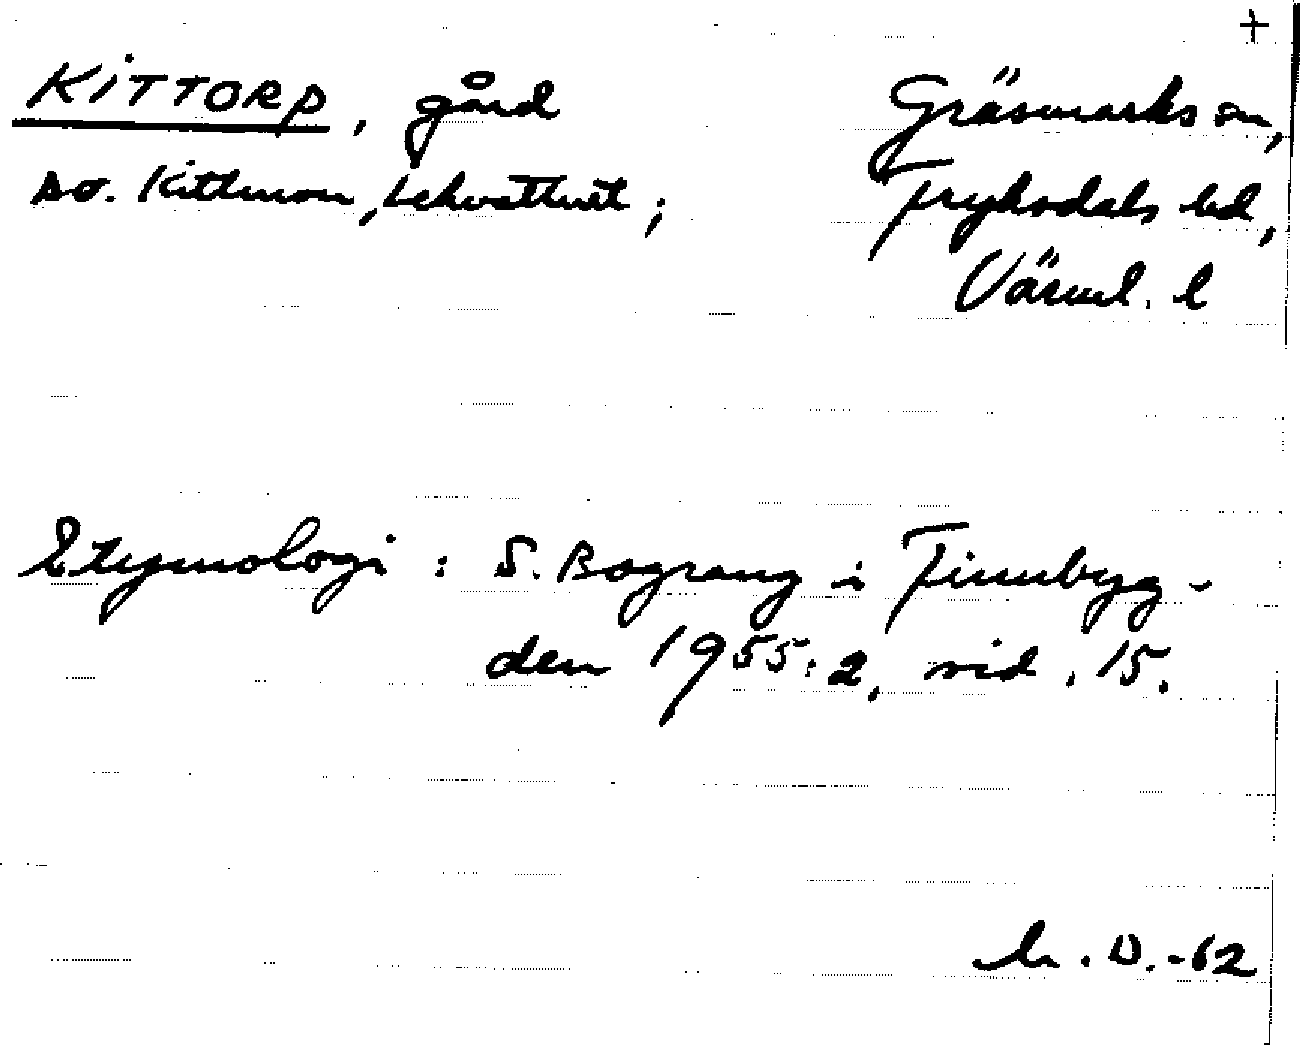 +
KITTORP, gård
Gräsmarks sn,
so. Kittmon, Lekvattnet;
Fryksdals hd,
Värml. l
Etymologi: S. Bograng i Finnbyg-
den 1955:2, sid. 15.
D.-62